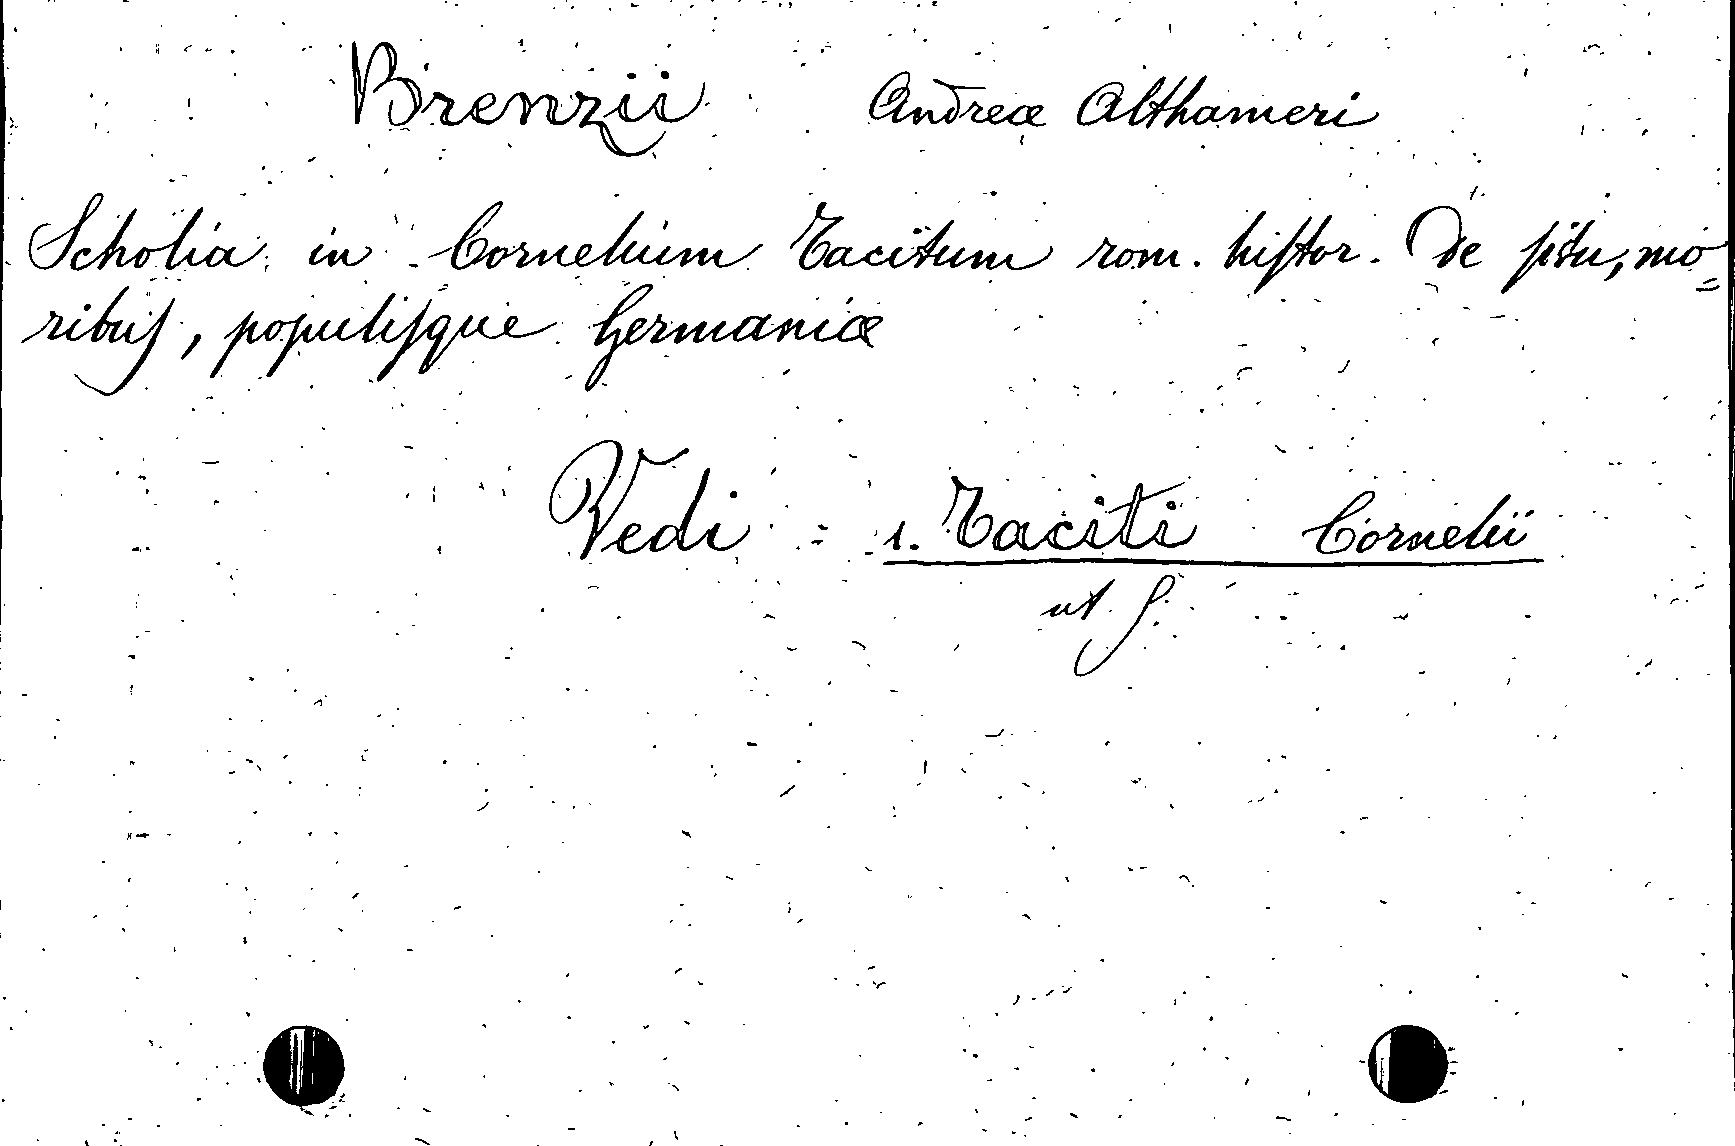 Brenzii Andreæ Althameri
Scholia in Cornelium Tacitum rom. hiſtor. De ſitu, mo=
ribuſ, populiſque Germaniæ
Vedi = 1. Taciti Cornelii
ut ſ.